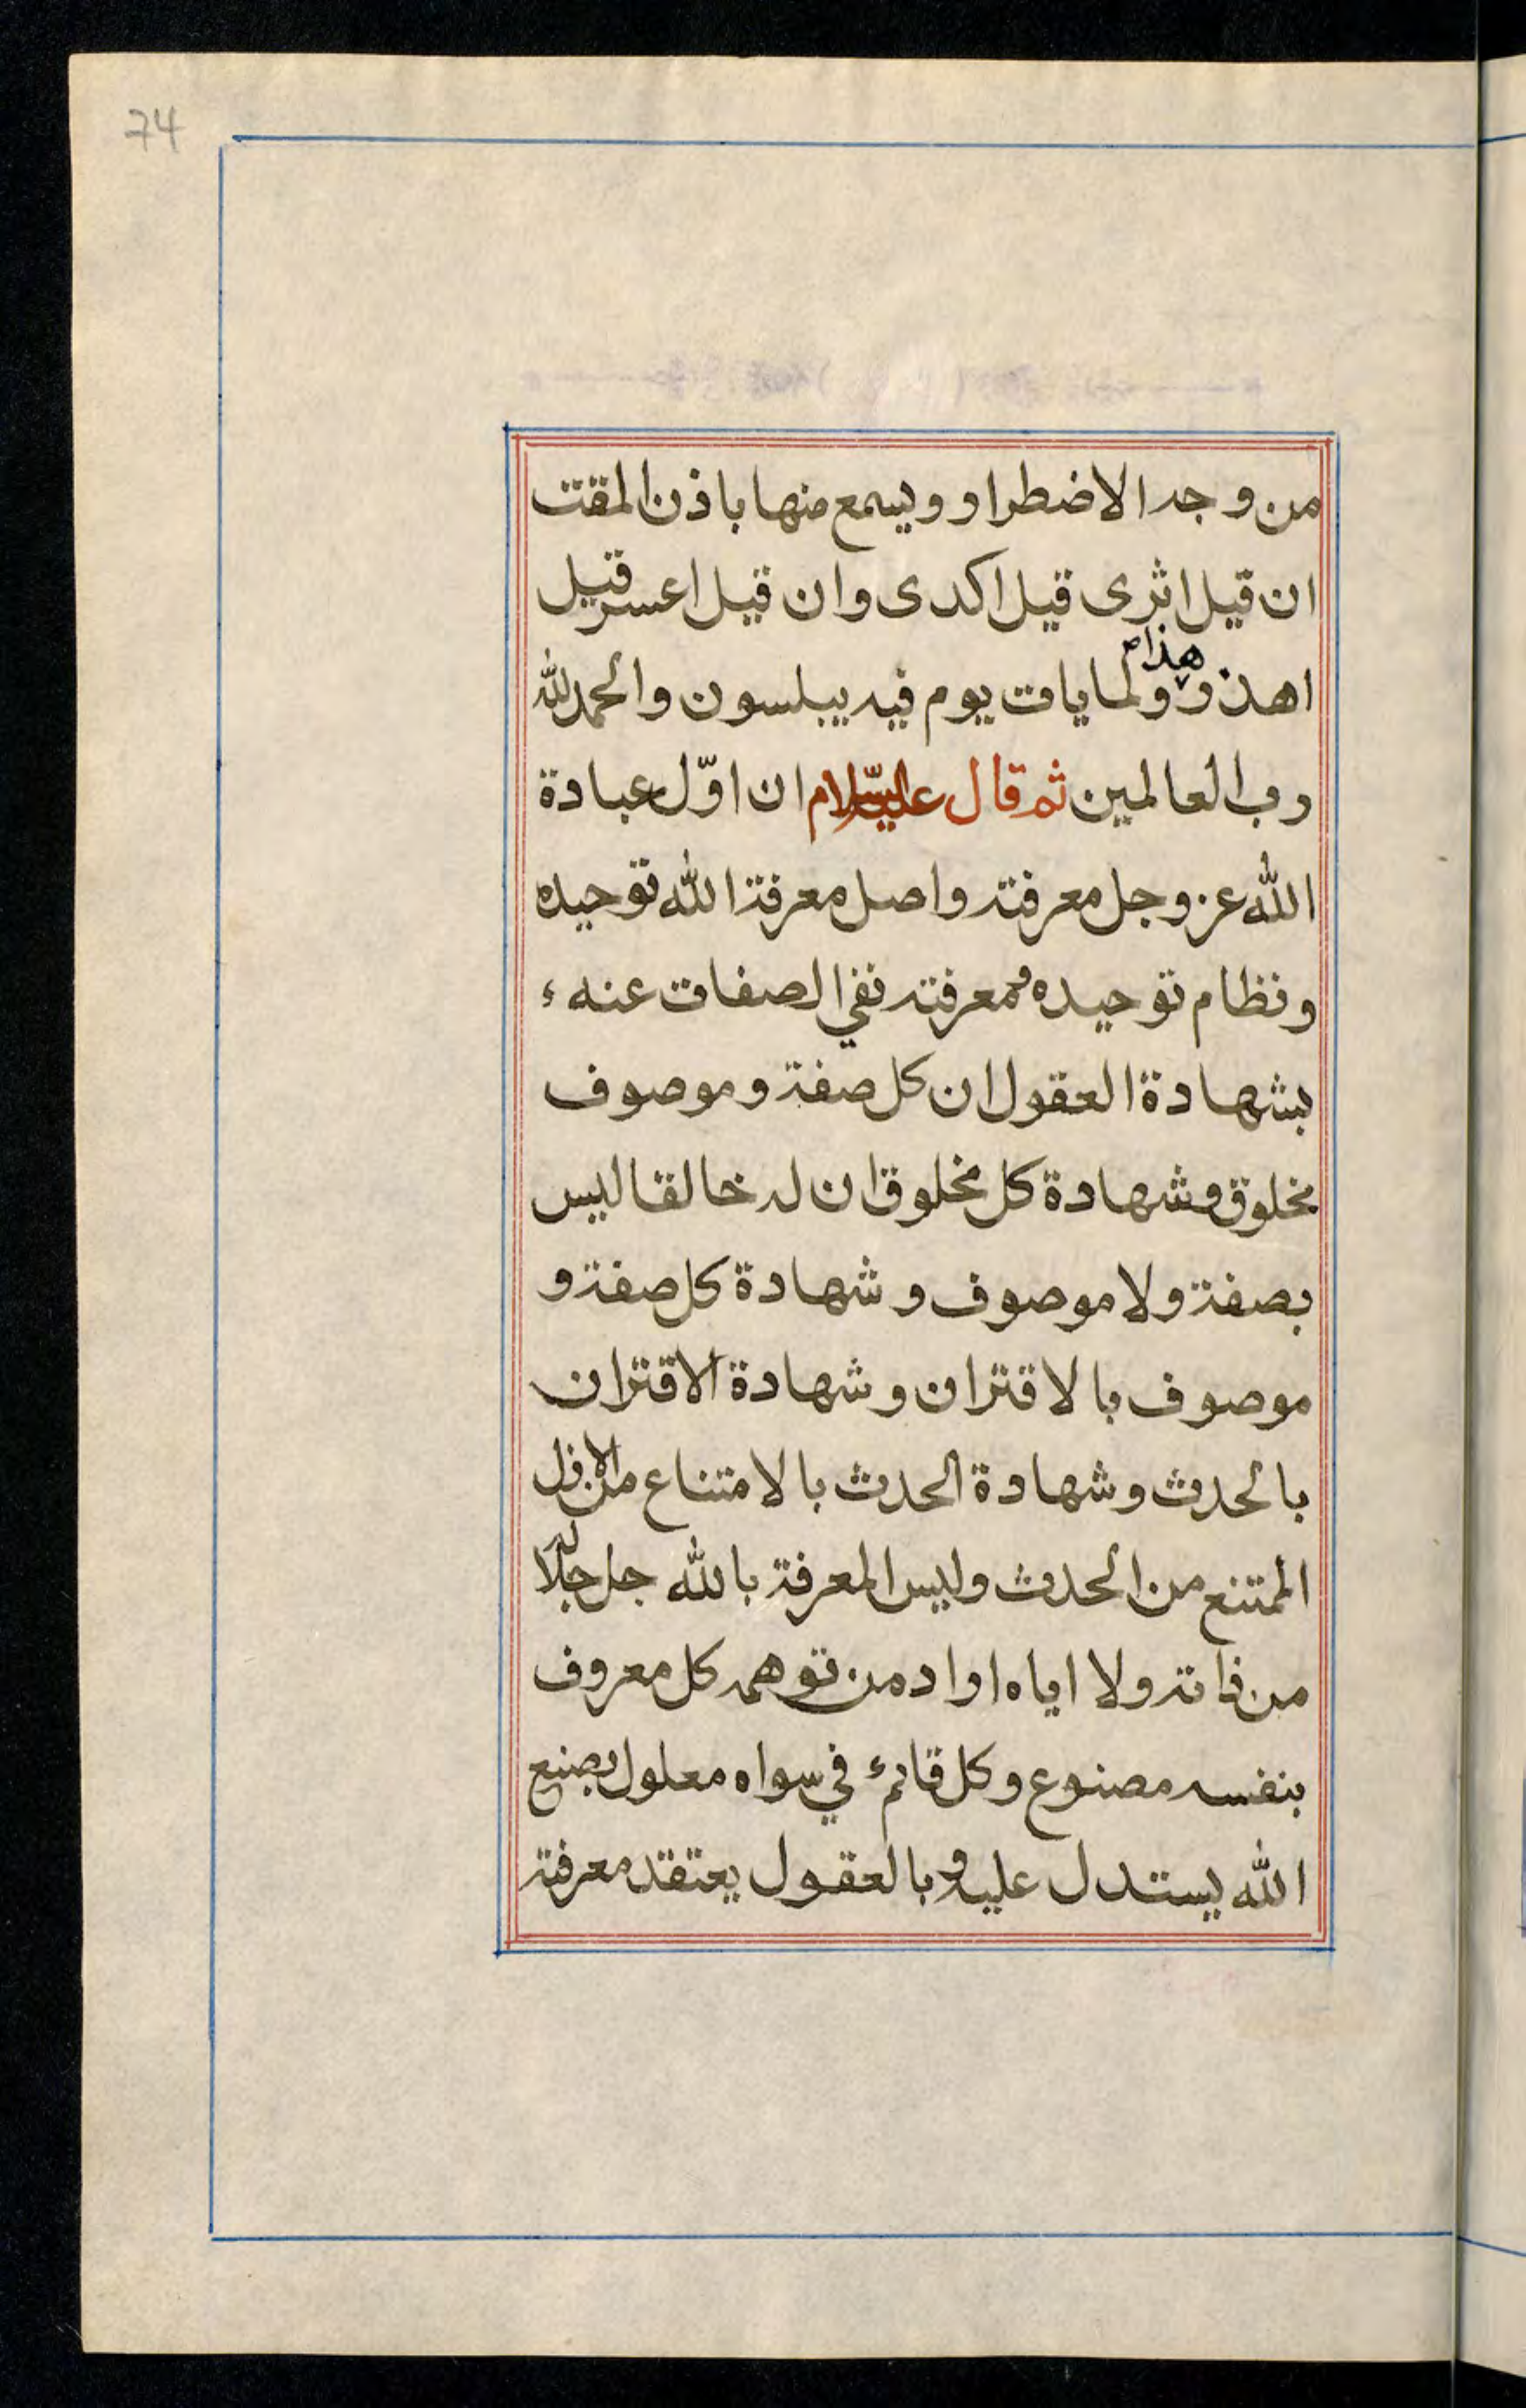 74
من وجد الاضطرار ويسمع منها باذن المقت
ان قيل اثرى قيل اكدى وان قيل اعسر قيل
هذام
اهذر ولما يات يوم فيه يبلسون والحمد لله
رب العالمين ثم قال عليه السّلام ان اوّل عبادة
الله عز وجل معرفته واصل معرفة الله توحيده
ونظام توحيده ومعرفته نفي الصفات عنه ء
بشهادة العقول ان كل صفة وموصوف
مخلوق وشهادة كل مخلوق ان له خالقا ليس
بصفة ولا موصوف وشهادة كل صفة و
موصوف بالاقتران وشهادة الاقتران
بالحدث وشهادة الحدث بالامتناع من الازل
الممتنع من الحدث وليس المعرفة بالله جل جلاله
من ذاته ولا اياه اراد من توهمه كل معروف
بنفسه مصنوع وكل قائم في سواه معلول بصنع
الله يستدل عليه وبالعقول يعتقد معرفته